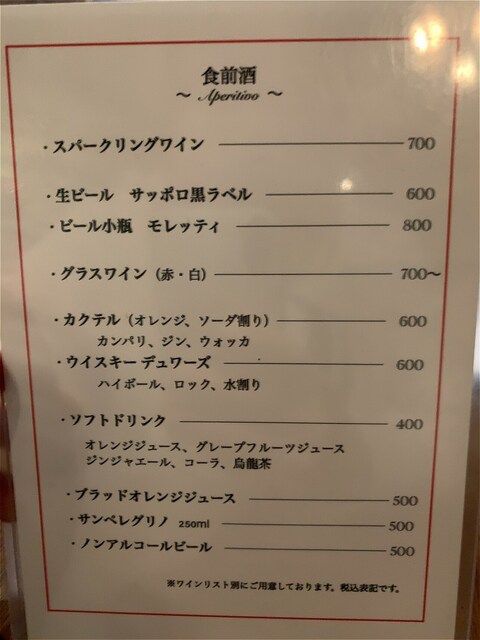 食前酒
～ Aperitivo ～
・スパークリングワイン 700
・生ビール サッポロ黒ラベル 600
・ビール小瓶 モレッティ 800
・グラスワイン（赤・白） 700～
・カクテル（オレンジ、ソーダ割り） 600
カンパリ、ジン、ウォッカ
・ウイスキー デュワーズ 600
ハイボール、ロック、水割り
・ソフトドリンク 400
オレンジジュース、グレープフルーツジュース
ジンジャエール、コーラ、烏龍茶
・ブラッドオレンジジュース 500
・サンペレグリノ 250ml 500
・ノンアルコールビール 500
※ワインリスト別にご用意しております。税込表記です。